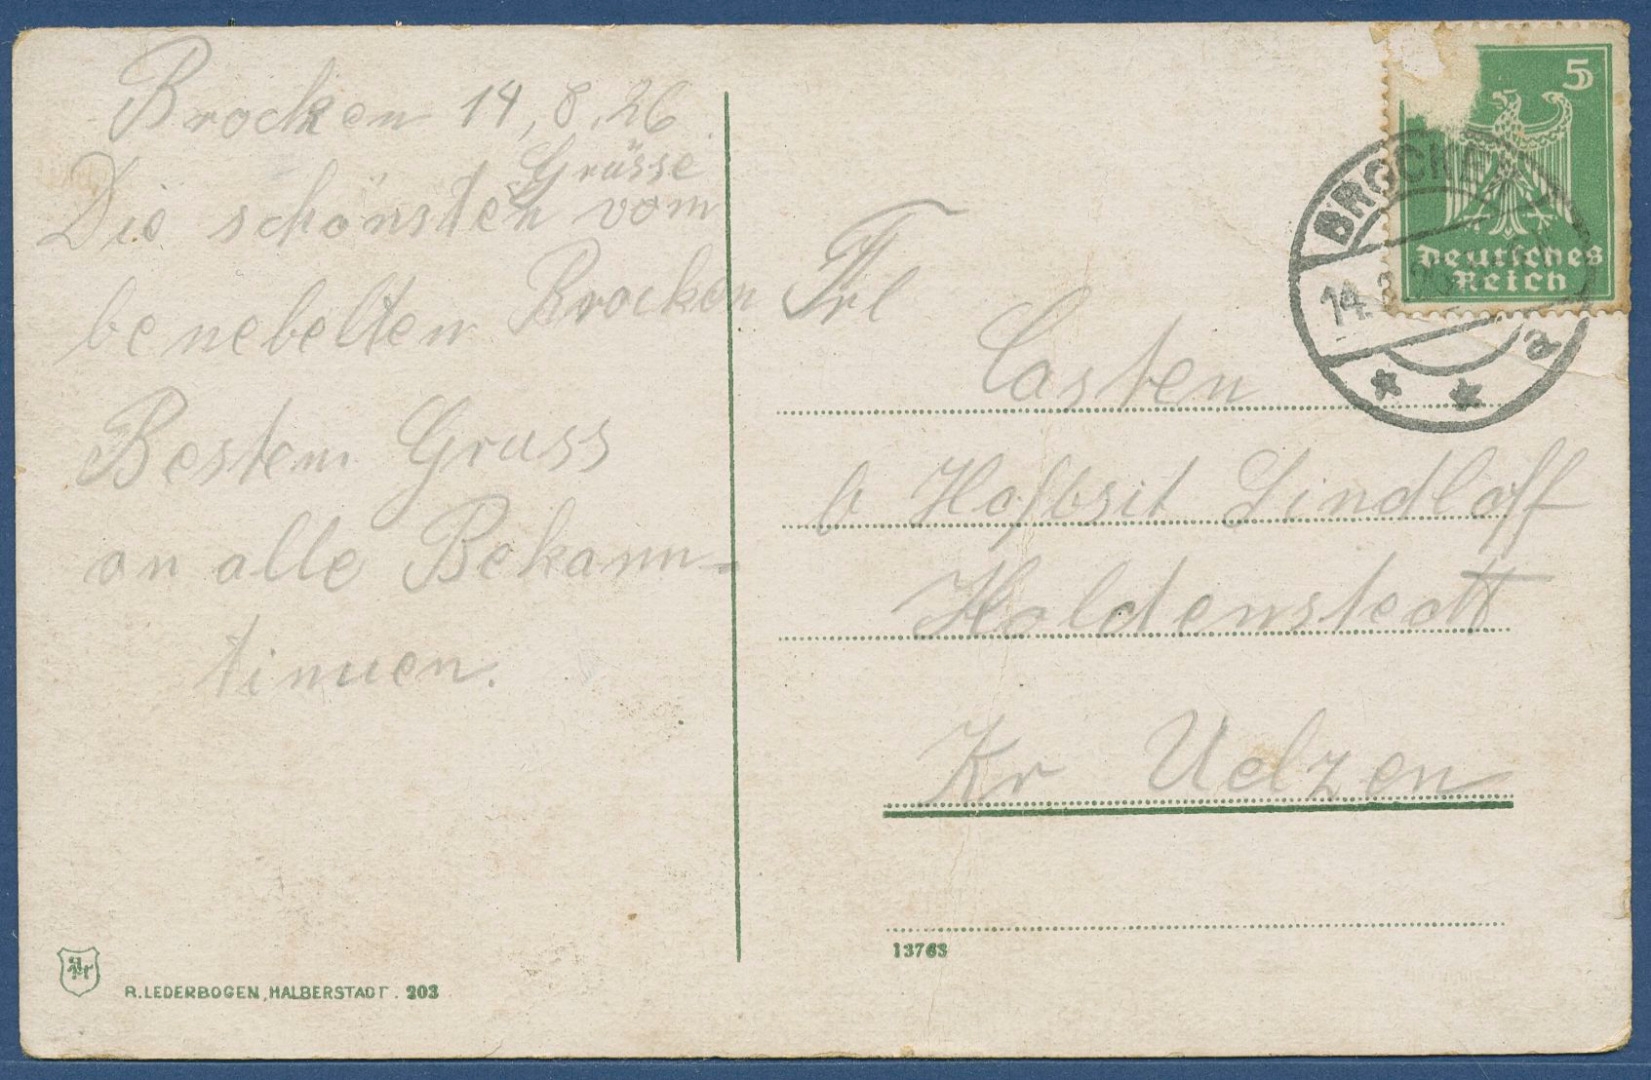 Brocken 14,8.26
Grüsse
Die schönsten vom
benebelten Brocken
Bestem Gruss
an alle Bekann-
tinnen.
R. LEDERBOGEN, HALBERSTADT. 203
5
Deutsches
Reich
BROCKEN
14.8.26
a
* *
Frl
Casten
b Hofbsit Lindloff
Holdenstedt
Kr Uelzen
13763